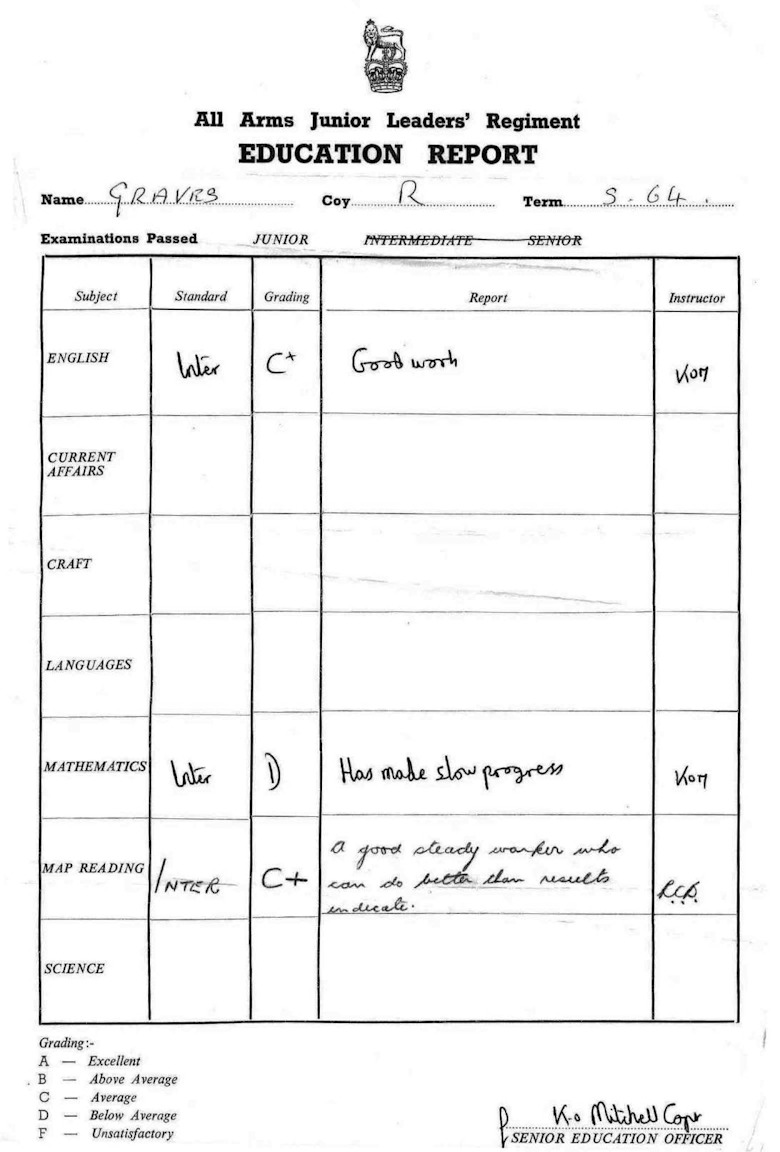 All Arms Junior Leaders' Regiment
EDUCATION REPORT
Name GRAVES Coy R Term S. 64.
Examinations Passed JUNIOR INTERMEDIATE SENIOR
Subject Standard Grading Report Instructor
ENGLISH Inter C+ Good work KOM
CURRENT
AFFAIRS
CRAFT
LANGUAGES
MATHEMATICS Inter D Has made slow progress KOM
MAP READING INTER C+ A good steady worker who
can do better than results
indicate.
SCIENCE
Grading:-
A — Excellent
B — Above Average
C — Average
D — Below Average
F — Unsatisfactory
K-o Mitchell Capt
SENIOR EDUCATION OFFICER